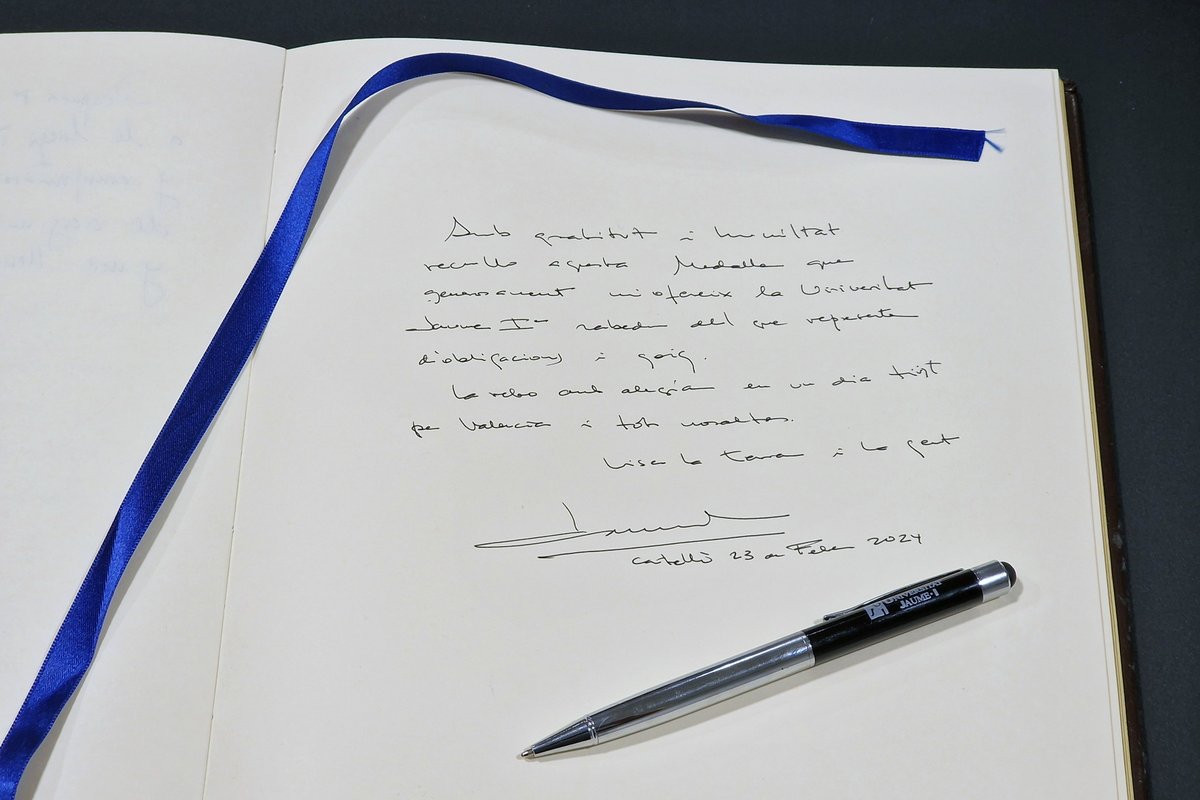 Amb gratitut i humiltat
recullo aquesta Medalla que
generosament m'ofereix la Universitat
Jaume Iᵉʳ sabedor del que representa
d'obligacions i goig.
La rebo amb alegria en un dia trist
per Valencia i tots nosaltres.
Visca la Terra i la gent
Castelló 23 de Febr 2024
UNIVERSITAT
JAUME·I